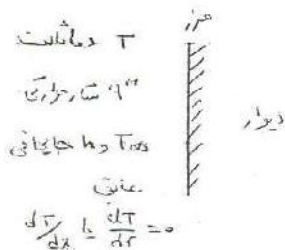 مرز
T دما ثابت
q" شار حرارتی
T∞ و h جابجایی
عایق
dT/dx یا dT/dr = 0
دیوار